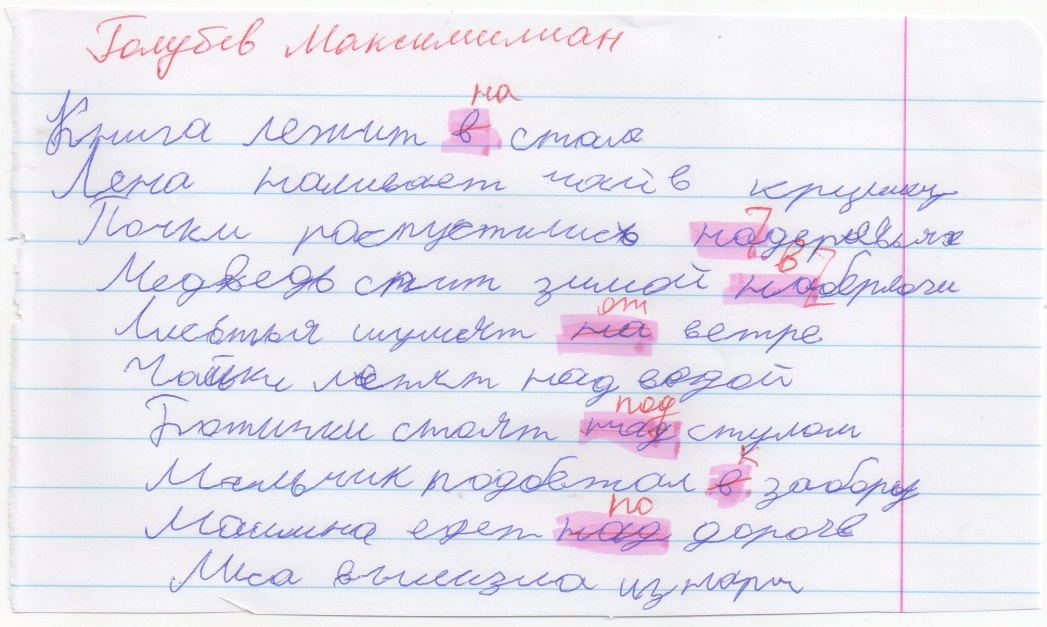 Голубев Максимилиан
на
Книга лежит в столе
Лена наливает чай в кружку
Почки распустились надеревьях
в
Медведь спит зимой наберлоги
от
Листья шумят на ветре
Чайки летят над водой
под
Ботинки стоят над стулом
к
Мальчик подбежал в забору
по
Машина едет над дороге
Лиса вылизла из нары